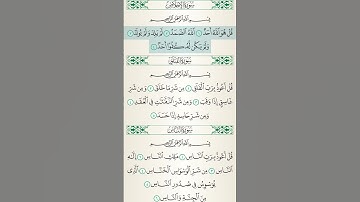 سورة الإخلاص
بسم الله الرحمن الرحيم
قُلْ هُوَ اللَّهُ أَحَدٌ ١ اللَّهُ الصَّمَدُ ٢ لَمْ يَلِدْ وَلَمْ يُولَدْ ٣
وَلَمْ يَكُن لَّهُ كُفُوًا أَحَدٌ ٤
سورة الفلق
بسم الله الرحمن الرحيم
قُلْ أَعُوذُ بِرَبِّ الْفَلَقِ ١ مِن شَرِّ مَا خَلَقَ ٢ وَمِن شَرِّ
غَاسِقٍ إِذَا وَقَبَ ٣ وَمِن شَرِّ النَّفَّاثَاتِ فِي الْعُقَدِ ٤
وَمِن شَرِّ حَاسِدٍ إِذَا حَسَدَ ٥
سورة الناس
بسم الله الرحمن الرحيم
قُلْ أَعُوذُ بِرَبِّ النَّاسِ ١ مَلِكِ النَّاسِ ٢ إِلَٰهِ
النَّاسِ ٣ مِن شَرِّ الْوَسْوَاسِ الْخَنَّاسِ ٤ الَّذِي
يُوَسْوِسُ فِي صُدُورِ النَّاسِ ٥
مِنَ الْجِنَّةِ وَالنَّاسِ ٦